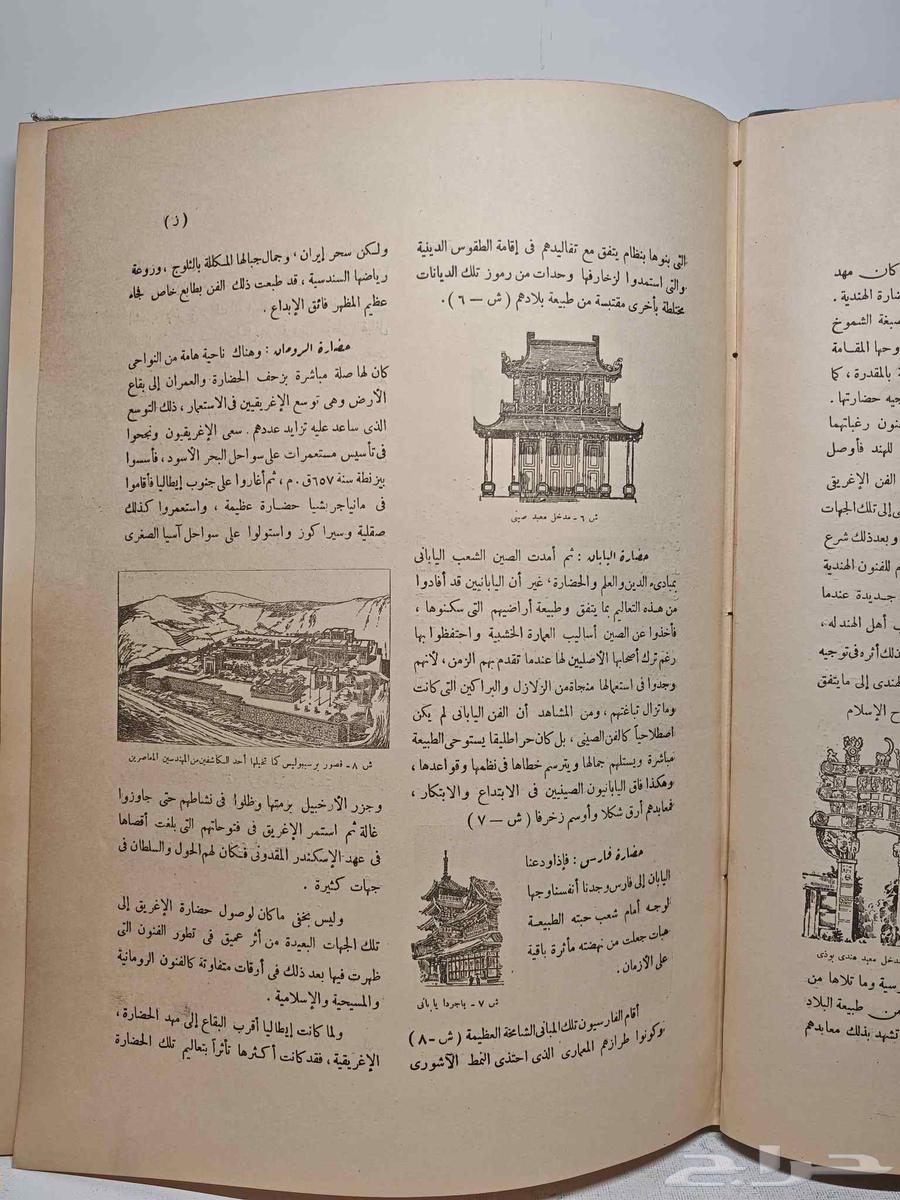 (ز)
التى بنوها بنظام يتفق مع تقاليدهم فى إقامة الطقوس الدينية
والتى استمدوا لزخارفها وحدات من رموز تلك الديانات
مختلطة بأخرى مقتبسة من طبيعة بلادهم (ش – ٦) .
ش ٦ – مدخل معبد صينى
حضارة اليابان : ثم أمدت الصين الشعب اليابانى
بمبادىء الدين والعلم والحضارة ، غير أن اليابانيين قد أفادوا
من هذه التعاليم بما يتفق وطبيعة أراضيهم التى سكنوها ،
فأخذوا عن الصين أساليب العمارة الخشبية واحتفظوا بها
رغم ترك أصحابها الأصليين لها عندما تقدم بهم الزمن ، لأنهم
وجدوا فى استعمالها منجاة من الزلازل والبراكين التى كانت
وما تزال تباغتهم ، ومن المشاهد أن الفن اليابانى لم يكن
اصطلاحياً كالفن الصينى ، بل كان حراً طليقا يستوحى الطبيعة
مباشرة ويستلهم جمالها ويترسم خطاها فى نظمها وقواعدها ،
وهكذا فاق اليابانيون الصينيين فى الابتداع والابتكار ،
فمعابدهم أرق شكلا وأوسم زخرفا (ش – ٧)
حضارة فارس : فإذا ودعنا
اليابان إلى فارس وجدنا أنفسنا وجها
لوجه أمام شعب حبته الطبيعة
هبات جعلت من نهضته مأثرة باقية
على الأزمان .
ش ٧ – باجودا يابانى
أقام الفارسيون تلك المبانى الشامخة العظيمة (ش – ٨)
وكونوا طرازهم المعمارى الذى احتذى النمط الآشورى
ولكن سحر إيران ، وجمال جبالها المكللة بالثلوج ، وروعة
رياضها السندسية ، قد طبعت ذلك الفن بطابع خاص لجاء
عظيم المظهر فائق الإبداع .
حضارة الرومان : وهناك ناحية هامة من النواحى
كان لها صلة مباشرة بزحف الحضارة والعمران إلى بقاع
الأرض وهى توسع الإغريقيين فى الاستعمار ، ذلك التوسع
الذى ساعد عليه تزايد عددهم . سعى الإغريقيون ونجحوا
فى تأسيس مستعمرات على سواحل البحر الأسود ، فأسسوا
بيزنطة سنة ٦٥٧ ق . م ، ثم أغاروا على جنوب إيطاليا فأقاموا
فى مانياجريشيا حضارة عظيمة ، واستعمروا كذلك
صقلية وسيراكوز واستولوا على سواحل آسيا الصغرى
ش ٨ – قصور برسيبوليس كما تخيلها أحد المكاشفين من المهندسين المعاصرين
وجزر الأرخبيل برمتها وظلوا فى نشاطهم حتى جاوزوا
غالة ثم استمر الإغريق فى فتوحاتهم التى بلغت أقصاها
فى عهد الإسكندر المقدونى فكان لهم الحول والسلطان فى
جهات كثيرة .
وليس بخفى ما كان لوصول حضارة الإغريق إلى
تلك الجهات البعيدة من أثر عميق فى تطور الفنون التى
ظهرت فيها بعد ذلك فى أوقات متفاوتة كالفنون الرومانية
والمسيحية والإسلامية .
ولما كانت إيطاليا أقرب البقاع إلى مهد الحضارة ،
الإغريقية ، فقد كانت أكثرها تأثراً بتعاليم تلك الحضارة
كان مهد
ضارة الهندية .
صبغة الشموخ
وحها المقامة
بالمقدرة ، كما
جيه حضارتها .
نون رغباتهما
للهند فأوصل
الفن الإغريق
إلى تلك الجهات
وبعد ذلك شرع
للفنون الهندية
جديدة عندما
أهل الهند له ،
ذلك أثره فى توجيه
هندى إلى ما يتفق
ح الإسلام
مدخل معبد هندى بوذى
رسية وما تلاها من
من طبيعة البلاد
تشهد بذلك معابدهم
حراج